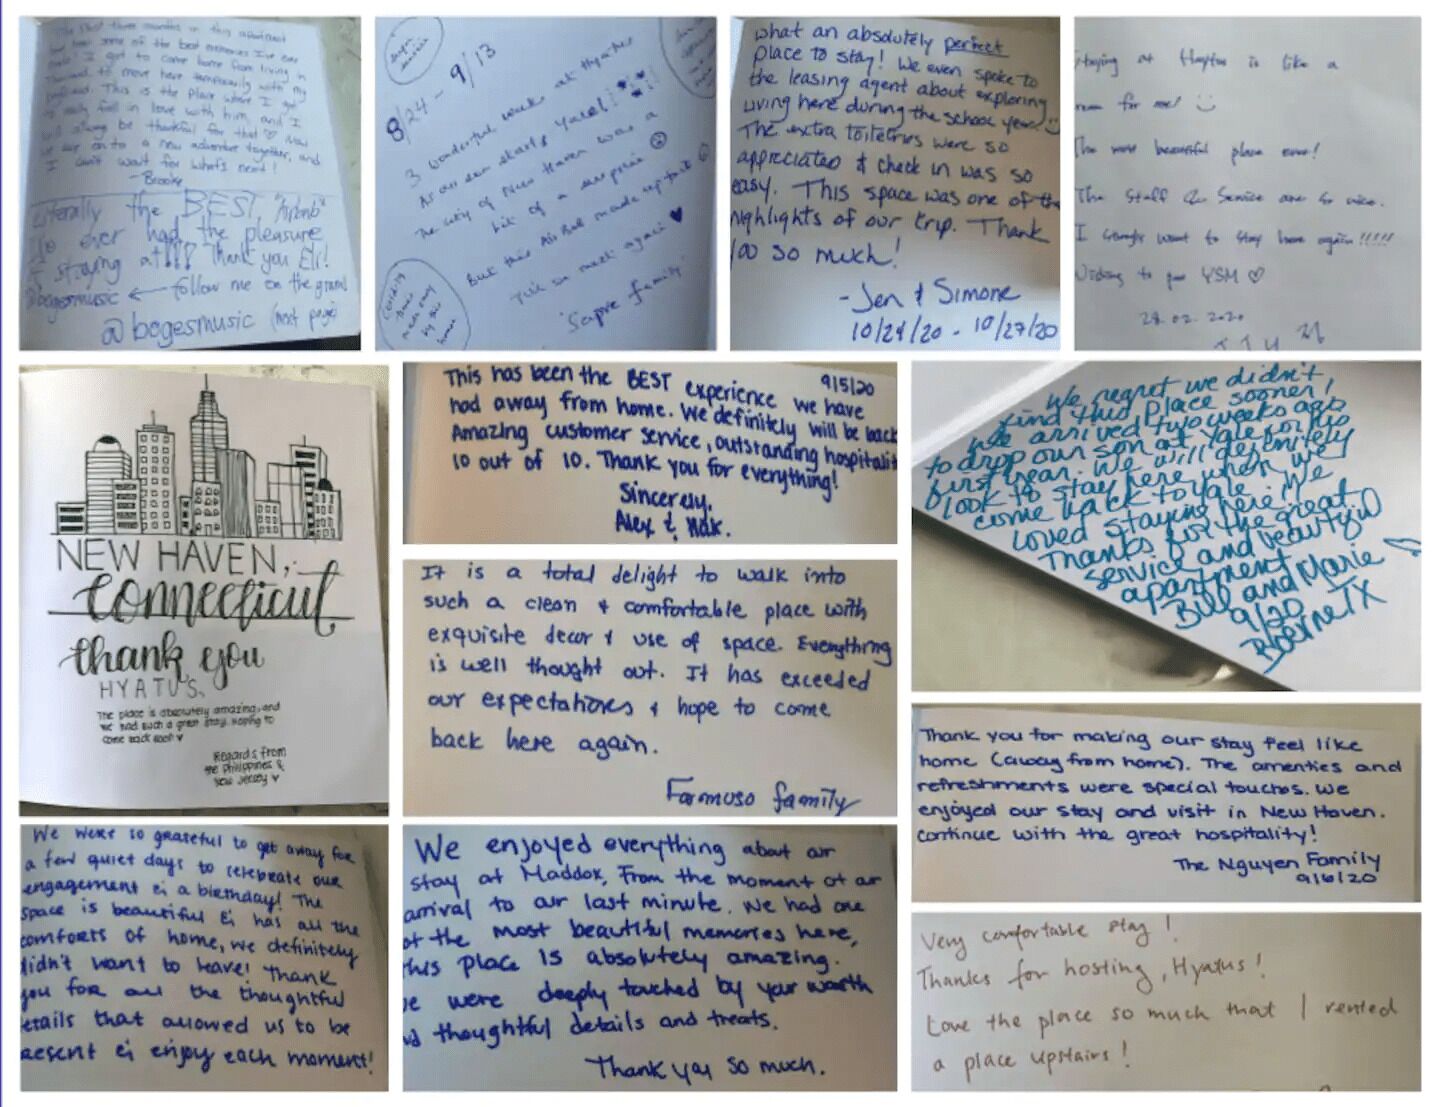 The past three months in this apartment
has been some of the best memories I've ever
made! I got to come home from living in
Thailand to move here temporarily with my
boyfriend. This is the place where I got
to really fall in love with him, and I
will always be thankful for that ♡ Now
we are on to a new adventure together, and
I can't wait for what's next!
-Brooke
Literally the BEST "Airbnb"
I've ever had the pleasure
of staying at!!! Thank you Eli!
@bogesmusic ← follow me on the gram!
@bogesmusic (next page)
8/24 - 9/13
3 wonderful weeks at Hyatus
As our son starts Yale!
The city of New Haven was a
bit of a surprise
But this Air BnB made up for it
Till we meet again ♥
Sapre family
what an absolutely perfect
place to stay! We even spoke to
the leasing agent about exploring
living here during the school year.
The extra toiletries were so
appreciated & check in was so
easy. This space was one of the
highlights of our trip. Thank
you so much!
-Jen & Simone
10/24/20 - 10/27/20
staying at Hyatus is like a
for me!
The most beautiful place ever!
The staff & Service are so nice.
I want to stay here again!!!!!
YSM ♡
28.02.2020
NEW HAVEN,
Connecticut
thank you
HYATUS.
The place is absolutely amazing, and
we had such a great stay. Hoping to
come back soon ♥
Regards from
the Philippines &
New Jersey ♥
9/5/20
This has been the BEST experience we have
had away from home. We definitely will be back
Amazing customer service, outstanding hospitalit
10 out of 10. Thank you for everything!
Sincerely,
Alex & Mak.
It is a total delight to walk into
such a clean & comfortable place with
exquisite decor & use of space. Everything
is well thought out. It has exceeded
our expectations & hope to come
back here again.
Formuso family
We regret we didn't
find this place sooner!
We arrived two weeks ago
to drop our son at Yale for his
first year. We will definitely
look to stay here when we
come back to Yale. We
loved staying here. We
Thanks for the great
service and beautiful
apartment
Bill and Marie
9/20
Boerne TX
Thank you for making our stay feel like
home (away from home). The amenties and
refreshments were special touches. We
enjoyed our stay and visit in New Haven.
continue with the great hospitality!
The Nguyen Family
9/6/20
We were so grateful to get away for
a few quiet days to celebrate our
engagement & a birthday! The
space is beautiful & has all the
comforts of home, we definitely
didn't want to leave! Thank
you for all the thoughtful
etails that allowed us to be
resent & enjoy each moment!
We enjoyed everything about our
stay at Maddox, From the moment of our
arrival to our last minute. We had one
of the most beautiful memories here,
this place is absolutely amazing.
we were deeply touched by your warth
nd thoughtful details and treats.
Thank you so much.
Very comfortable stay!
Thanks for hosting, Hyatus!
Love the place so much that I rented
a place upstairs!